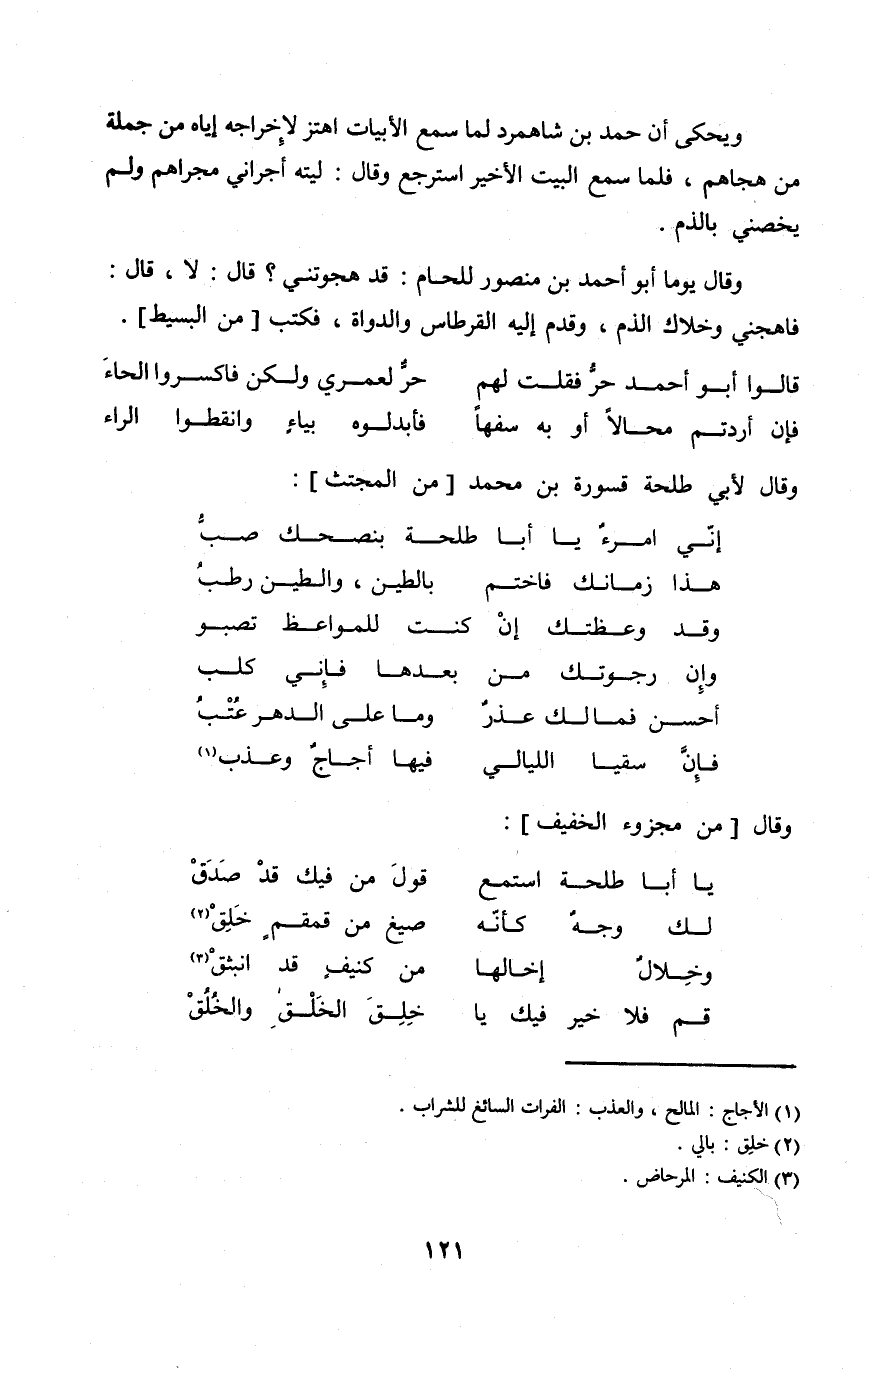 ويحكى أن حمد بن شاهمرد لما سمع الأبيات اهتز لإخراجه إياه من جملة
من هجاهم ، فلما سمع البيت الأخير استرجع وقال : ليته أجراني مجراهم ولم
يخصني بالذم .
وقال يوما أبو أحمد بن منصور للحام : قد هجوتني ؟ قال : لا ، قال :
فاهجني وخلاك الذم ، وقدم إليه القرطاس والدواة ، فكتب [ من البسيط ] .
قالوا أبو أحمد حرٌّ فقلت لهم حرٌّ لعمري ولكن فاكسروا الحاءَ
فإن أردتم محالاً أو به سفهاً فأبدلوه بياءٍ وانقطوا الراء
وقال لأبي طلحة قسورة بن محمد [ من المجتث ] :
إنّي امرءٌ يا أبا طلحة بنصحك صبُّ
هذا زمانك فاختم بالطين ، والطين رطبُ
وقد وعظتك إنْ كنت للمواعظ تصبو
وإن رجوتك من بعدها فإني كلب
أحسن فمالك عذرٌ وما على الدهر عُتْبُ
فإنَّ سقيا الليالي فيها أجاجٌ وعذب(١)
وقال [ من مجزوء الخفيف ] :
يا أبا طلحة استمع قولَ من فيك قدْ صَدَقْ
لك وجهٌ كأنّه صيغ من قمقمٍ خَلِقْ(٢)
وخِلالٌ إخالها من كنيفٍ قد انبثقْ(٣)
قم فلا خير فيك يا خلِقَ الخَلْقِ والخُلُقْ
(١) الأجاج : المالح ، والعذب : الفرات السائغ للشراب .
(٢) خلِق : بالي .
(٣) الكنيف : المرحاض .
١٢١